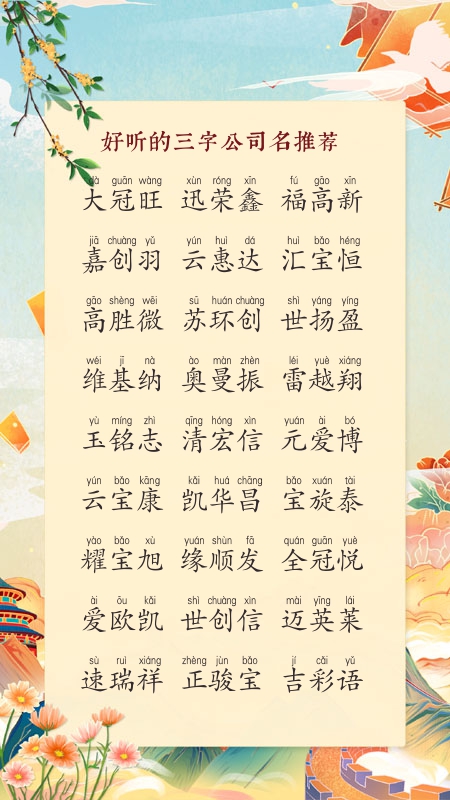 好听的三字公司名推荐
dà guān wàng xùn róng xīn fú gāo xīn
大冠旺 迅荣鑫 福高新
jiā chuàng yǔ yún huì dá huì bǎo héng
嘉创羽 云惠达 汇宝恒
gāo shèng wēi sū huán chuàng shì yáng yíng
高胜微 苏环创 世扬盈
wéi jī nà ào màn zhèn léi yuè xiáng
维基纳 奥曼振 雷越翔
yù míng zhì qīng hóng xìn yuán ài bó
玉铭志 清宏信 元爱博
yún bǎo kāng kǎi huá chāng bǎo xuán tài
云宝康 凯华昌 宝旋泰
yào bǎo xù yuán shùn fā quán guān yuè
耀宝旭 缘顺发 全冠悦
ài ōu kǎi shì chuàng xìn mài yīng lái
爱欧凯 世创信 迈英莱
sù ruì xiáng zhèng jùn bǎo jí cǎi yǔ
速瑞祥 正骏宝 吉彩语